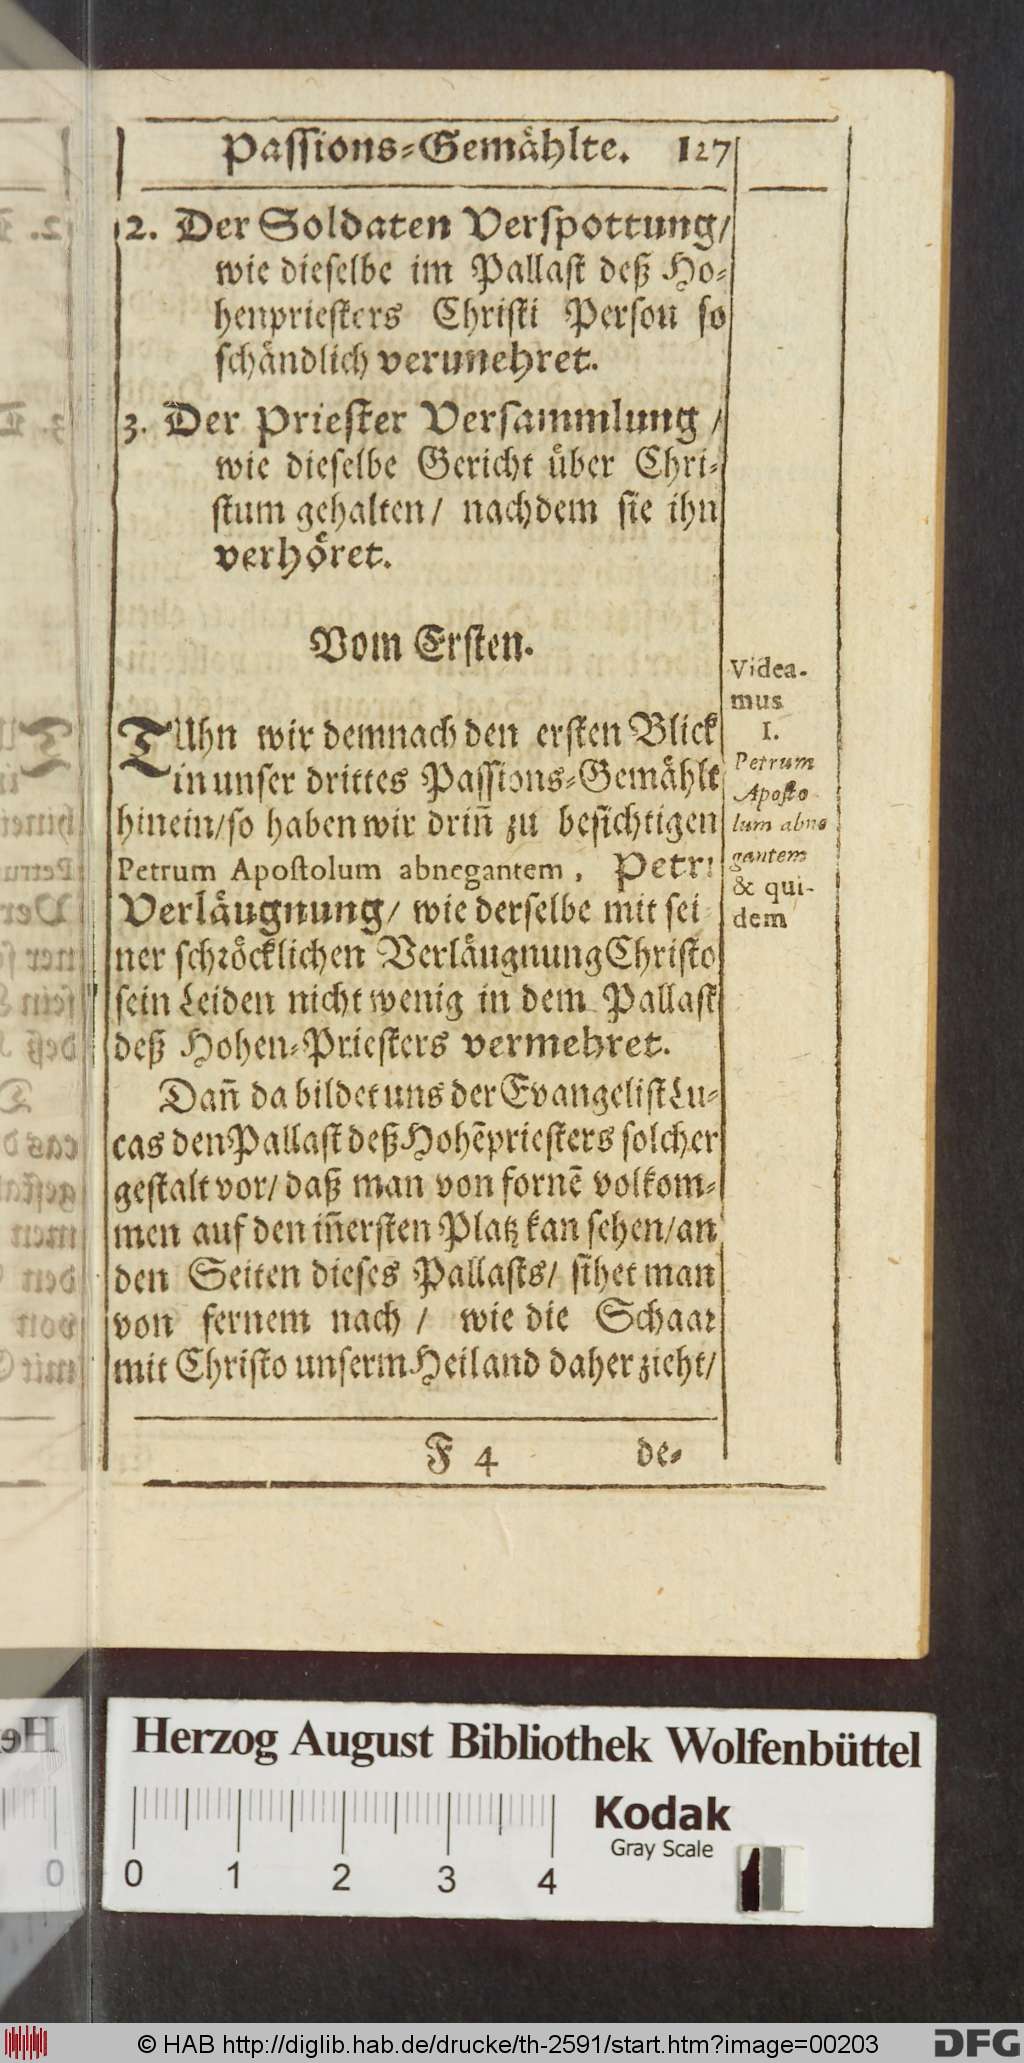 Passions-Gemählte. 127
2. Der Soldaten Verspottung/
wie dieselbe im Pallast deß Ho-
henpriesters Christi Person so
schändlich verunehret.
3. Der Priester Versammlung /
wie dieselbe Gericht über Chri-
stum gehalten/ nachdem sie ihn
verhöret.
Vom Ersten.
TUhn wir demnach den ersten Blick
in unser drittes Passions-Gemählt
hinein/so haben wir driñ zu besichtigen
Petrum Apostolum abnegantem, Petri
Verläugnung/ wie derselbe mit sei
ner schröcklichen Verläugnung Christo
sein Leiden nicht wenig in dem Pallast
deß Hohen-Priesters vermehret.
Dañ da bildet uns der Evangelist Lu-
cas den Pallast deß Hohẽpriesters solcher
gestalt vor/ daß man von fornẽ volkom-
men auf den iñersten Platz kan sehen/an
den Seiten dieses Pallasts/ sihet man
von fernem nach / wie die Schaar
mit Christo unserm Heiland daher zieht/
F 4 de-
Videa-
mus
I.
Petrum
Aposto
lum abne
gantem
& qui-
dem
Herzog August Bibliothek Wolfenbüttel
Kodak
Gray Scale
0 1 2 3 4
© HAB http://diglib.hab.de/drucke/th-2591/start.htm?image=00203
DFG